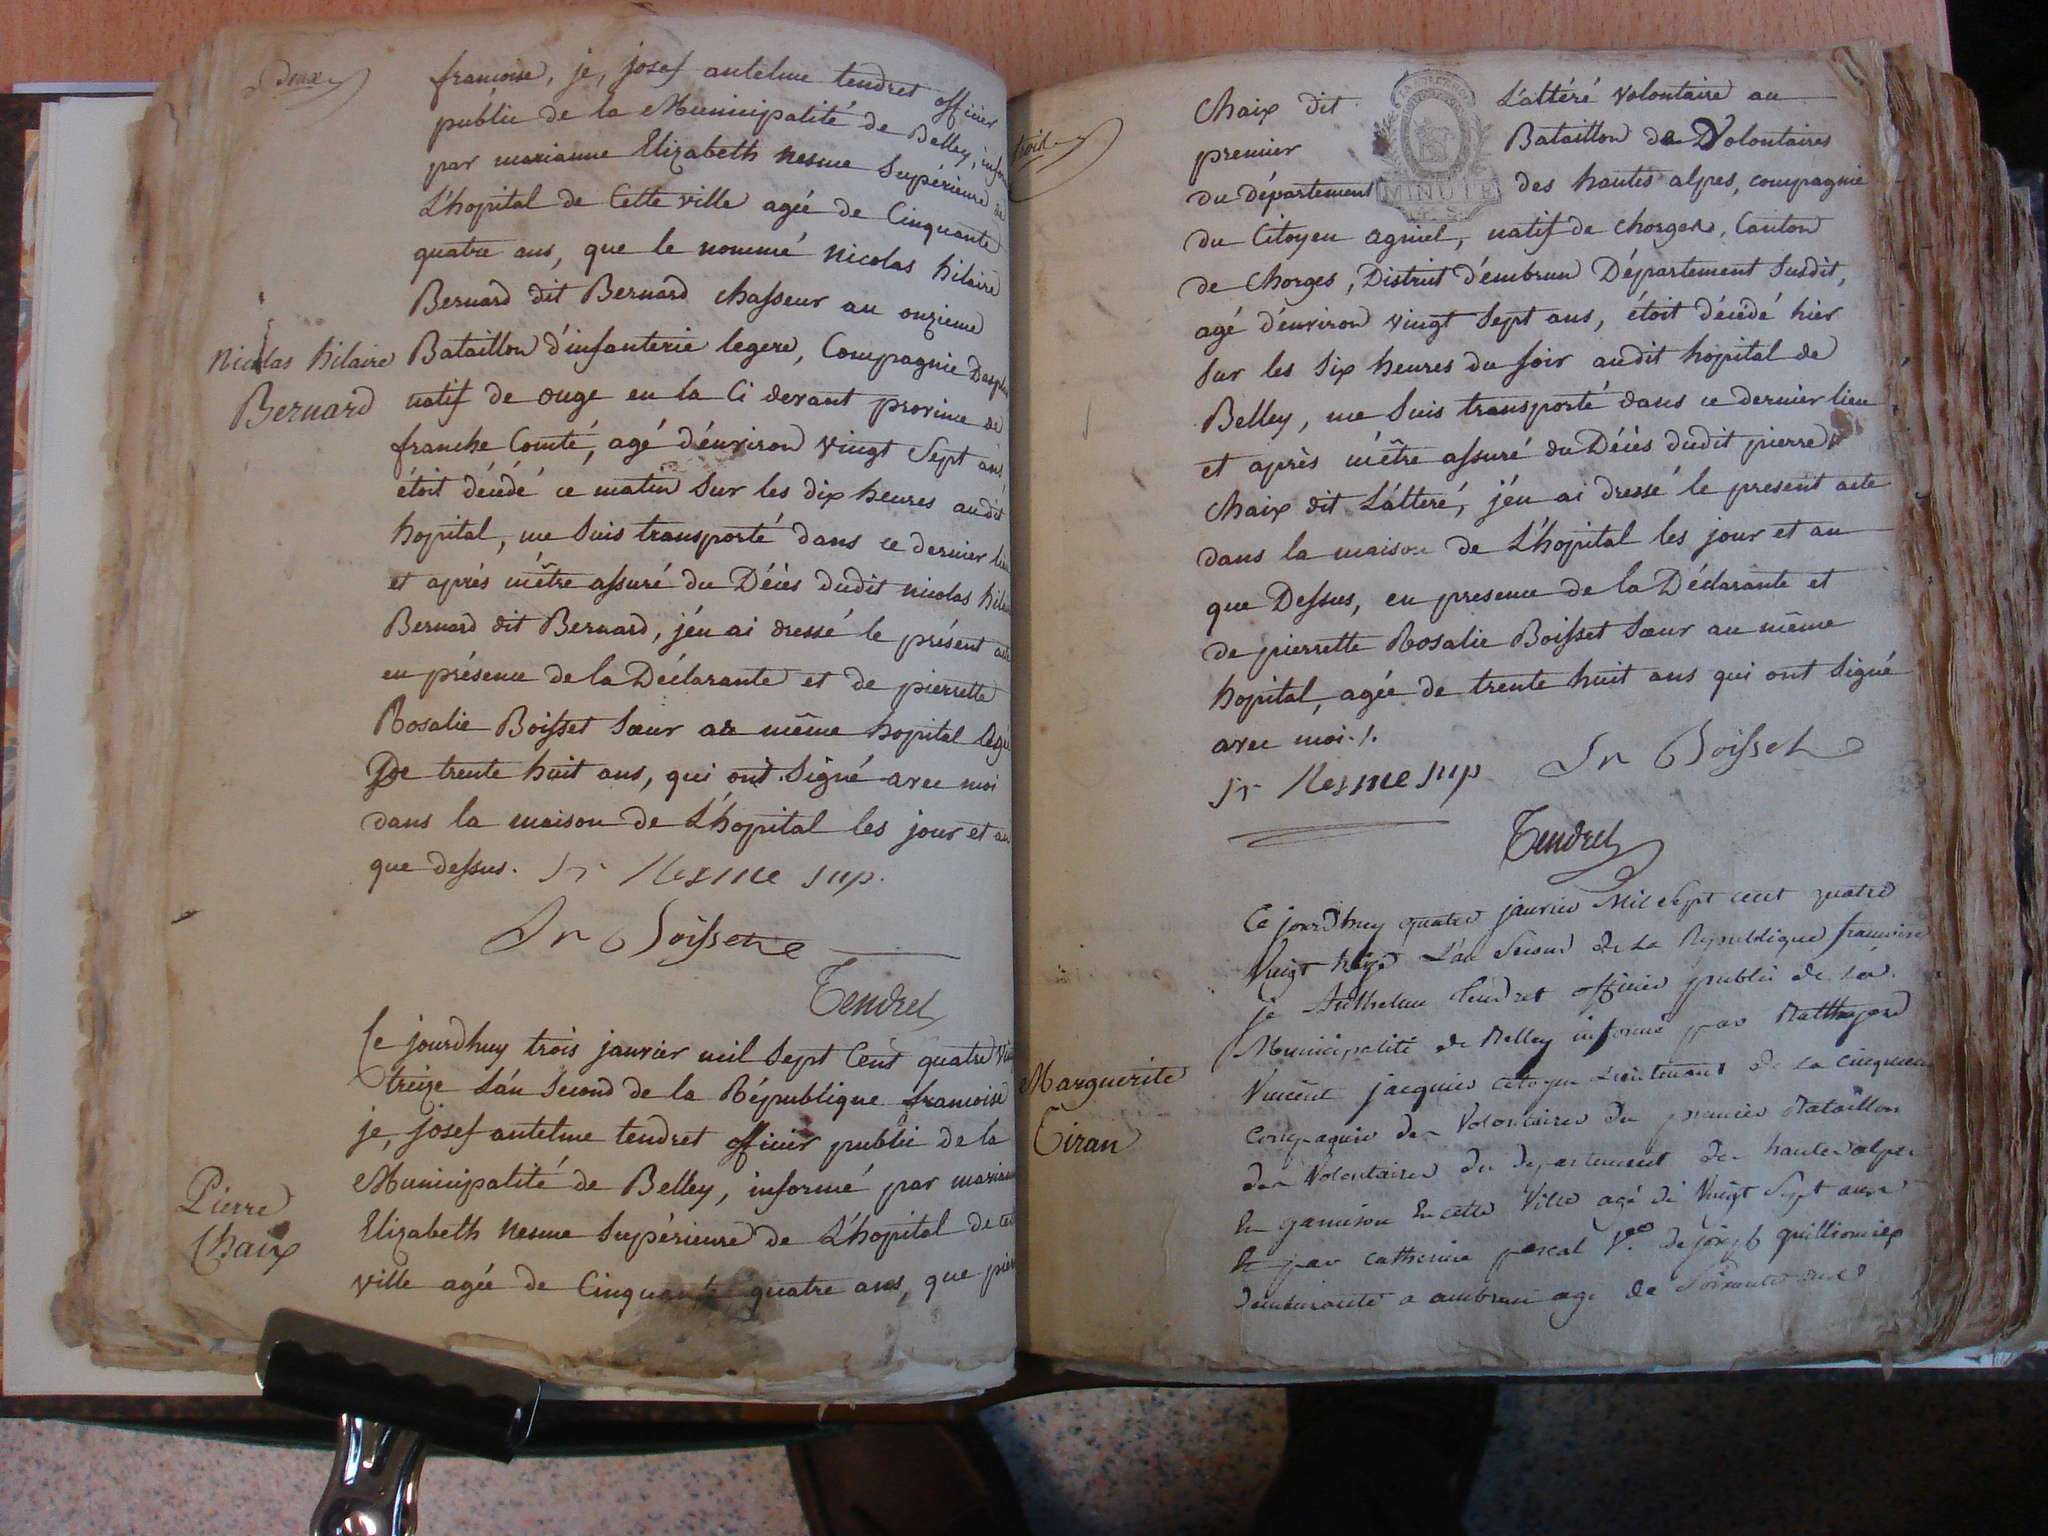 Deux
francoise, je, josef antelme tendret officier
public de la Municipalité de Belley, informé
par marianne Elizabeth nesme Supérieure de
L'hopital de Cette ville agée de Cinquante
quatre ans, que le nommé nicolas hilaire
Bernard dit Bernard chasseur au onzieme
Bataillon d'infanterie legere, Compagnie
natif de ouge en la Ci devant province de
franche Comté, agé d'environ vingt Sept ans,
étoit décédé ce matin Sur les dix heures audit
hopital, me Suis transporté dans ce dernier lieu
et aprés m'être assuré du Décès dudit nicolas hilaire
Bernard dit Bernard, j'en ai dressé le présent acte
en présence de la Déclarante et de pierrette
Rosalie Boisset Sœur au même hopital agée
De trente huit ans, qui ont Signé avec moi
dans la maison de L'hopital les jour et an
que dessus. Sr Nesme sup.
Sr Boisset
Tendret
nicolas hilaire
Bernard
Ce jourdhuy trois janvier mil Sept Cent quatre vingt
treize L'an Second de la République francoise
je, josef antelme tendret officier public de la
Municipalité de Belley, informé par marianne
Elizabeth nesme Supérieure de L'hopital de cette
ville agée de Cinquante quatre ans, que pierre
Pierre
Chaix
trois
Chaix dit L'altéré volontaire au
premier Bataillon de Volontaires
MINUTE
du département des hautes alpes, compagnie
du Citoyen agniel, natif de chorges, Canton
de Chorges, District d'embrun Département Susdit,
agé d'environ vingt Sept ans, étoit décédé hier
Sur les Six heures du Soir audit hopital de
Belley, me Suis transporté dans ce dernier lieu
et aprés m'être assuré du Décès dudit pierre
Chaix dit L'altéré, j'en ai dressé le present acte
dans la maison de L'hopital les jour et an
que Dessus, en presence de la Déclarante et
de pierrette Rosalie Boisset Sœur au même
hopital, agée de trente huit ans qui ont Signé
avec moi ./.
Sr Nesme sup Sr Boisset
Tendret
Ce jourdhuy quatre janvier Mil Sept cent quatre
Vingt treize L'an Second de La Republique francoise
je Anthelme tendret officier public de la
Municipalité de Belley informé par
Vincent jacques Citoyen Lieutenant de La cinquieme
Compagnie des Volontaires du premier Bataillon
des Volontaires du departement des hautes alpes
En garnison En cette Ville agé de Vingt Sept ans
Et par Catherine pascal Ve de joseph
demeurante a ambrun age de Soixante
Marguerite
Tiran